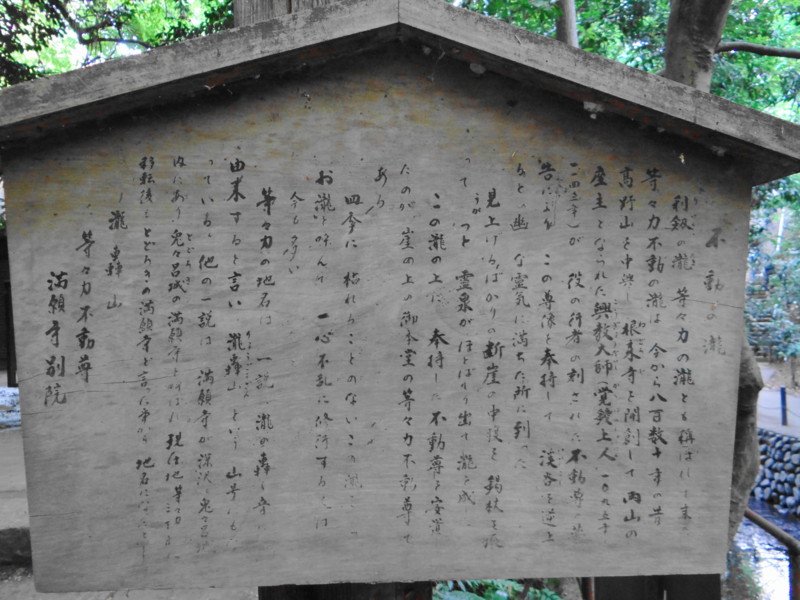 不動の瀧
利釼の瀧 等々力の瀧とも称ばれて来た
等々力不動の瀧は 今から八百数十年の昔
高野山を中興し 根来寺を開創して 両山の
座主となられた興教大師(覚鑁上人 一〇九五年
一一四三年)が 役の行者の刻された不動尊の
告により この尊像を奉持して 渓谷を逆上
ると 幽 な霊気に満ちた所に到った
見上げるばかりの断崖の中段を 錫杖を
って うがつと 霊泉がほとばしり出て瀧を成し
この瀧の上に 奉持した不動尊を安置
たのが 崖の上の御本堂の等々力不動尊で
ある
四今に 枯れることのないこの瀧
お瀧 一心不乱に修行する人は
今も多い
等々力の地名は 一説 瀧の轟く音に
由来すると言い 瀧轟山 という 山号も
っている 他の一説は 満願寺が深沢 兎々呂城
内にあり 兎々呂城の満願寺と呼ばれ 現在地等々力
移転後も とどろきの満願寺と言った 地名になった
瀧轟山
等々力不動尊
満願寺別院